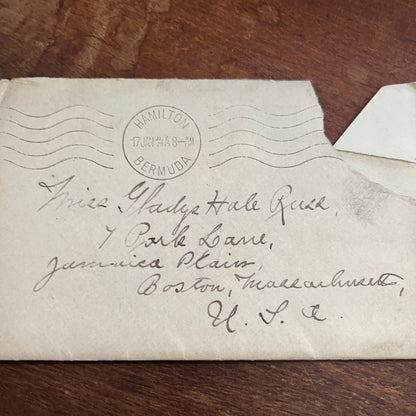 HAMILTON
BERMUDA
Miss Gladys Hale Russ,
7 Park Lane,
Jamaica Plain,
Boston, Massachusetts,
U. S. A.